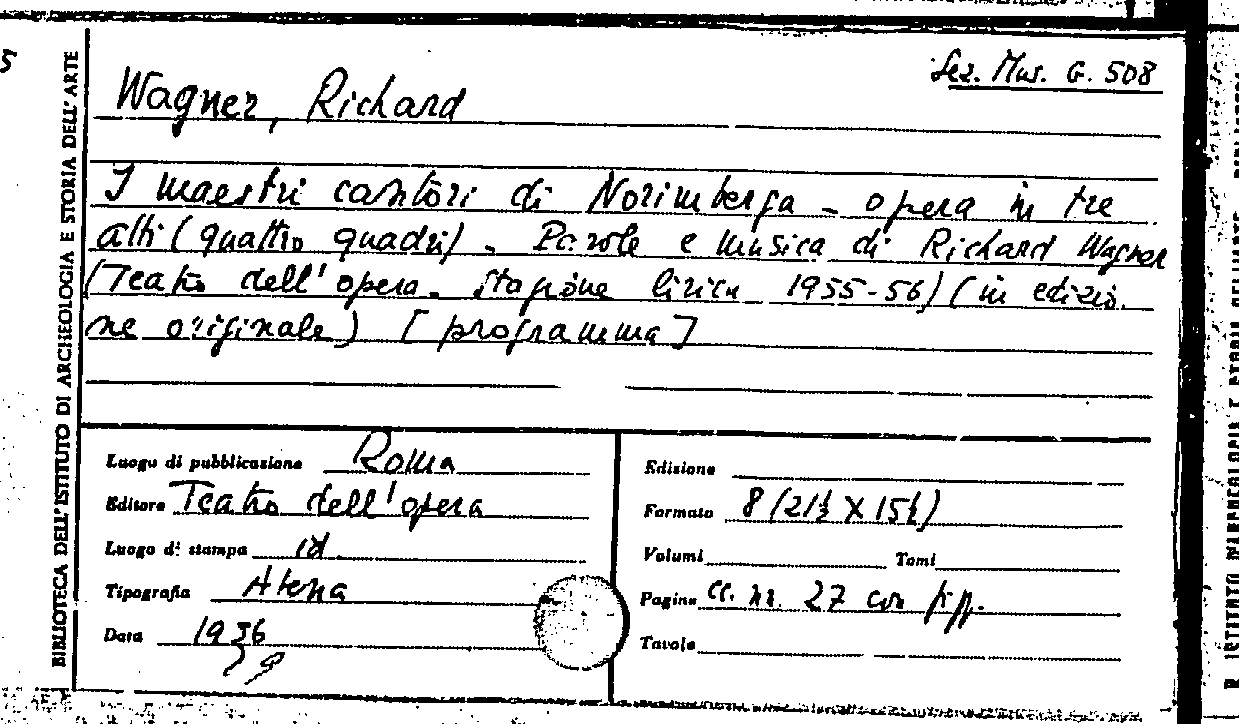 Sez. Mus. G. 508
Wagner, Richard
I maestri cantori di Norimberga - opera in tre
atti (quattro quadri) - Parole e musica di Richard Wagner
(Teatro dell'opera - stagione lirica 1955-56) (in edizio-
ne originale) [programma]
BIBLIOTECA DELL'ISTITUTO DI ARCHEOLOGIA E STORIA DELL'ARTE
Luogo di pubblicazione Roma
Editore Teatro dell'opera
Luogo di stampa id
Tipografia Atena
Data 1956
Edizione
Formato 8 (21½ X 15½)
Volumi Tomi
Pagine cc. nn. 27 con figg.
Tavole
5